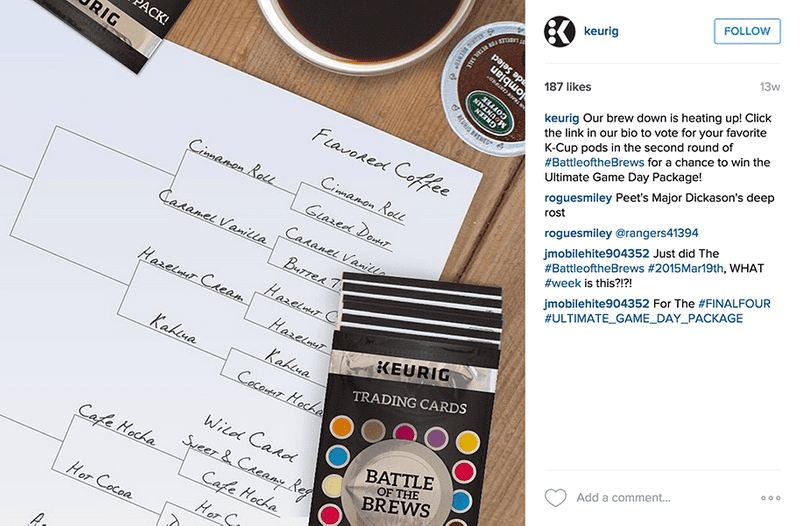 PACK!
URIG
Flavored Coffee
Cinnamon Roll
Cinnamon Roll
Glazed Donut
Caramel Vanilla
Caramel Vanilla
Butter T
Hazelnut Cream
Hazelnut C
Hazelnut
Kahlua
Kahlua
Coconut Mocha
Wild Card
Sweet & Creamy Reg
Cafe Mocha
Cafe Mocha
Hot Cocoa
Hot C
GREEN MOUNTAIN COFFEE
KEURIG
TRADING CARDS
BATTLE
OF THE
BREWS
keurig
FOLLOW
187 likes
13w
keurig Our brew down is heating up! Click
the link in our bio to vote for your favorite
K-Cup pods in the second round of
#BattleoftheBrews for a chance to win the
Ultimate Game Day Package!
roguesmiley Peet's Major Dickason's deep
rost
roguesmiley @rangers41394
jmobilehite904352 Just did The
#BattleoftheBrews #2015Mar19th, WHAT
#week is this?!?!
jmobilehite904352 For The #FINALFOUR
#ULTIMATE_GAME_DAY_PACKAGE
Add a comment...